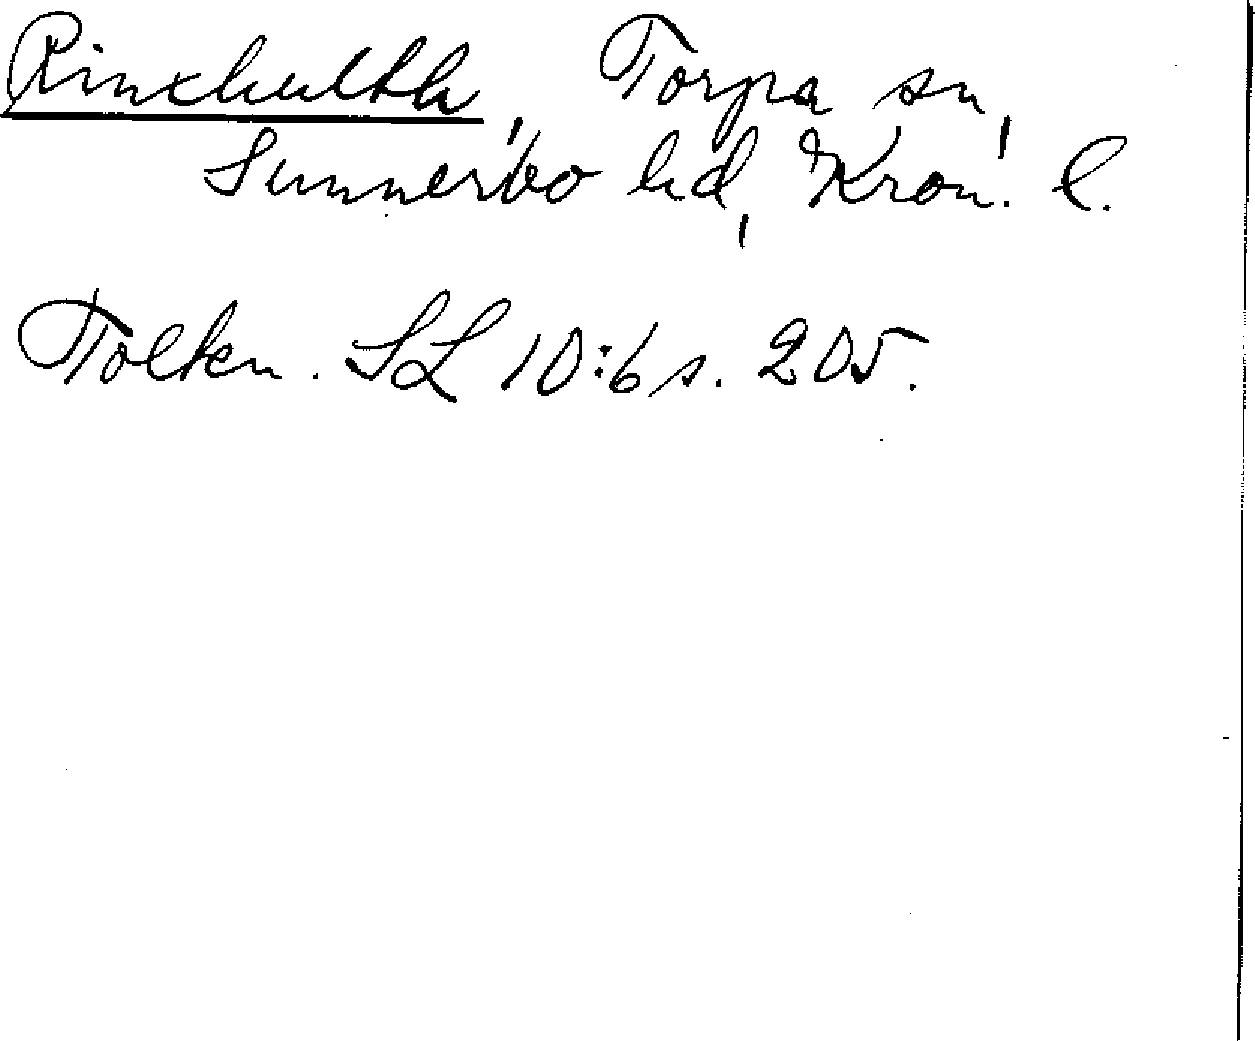 Rinxhulth, Torpa sn,
Sunnerbo hd, Kron. l.
Tolkn. SL 10:6 s. 205.